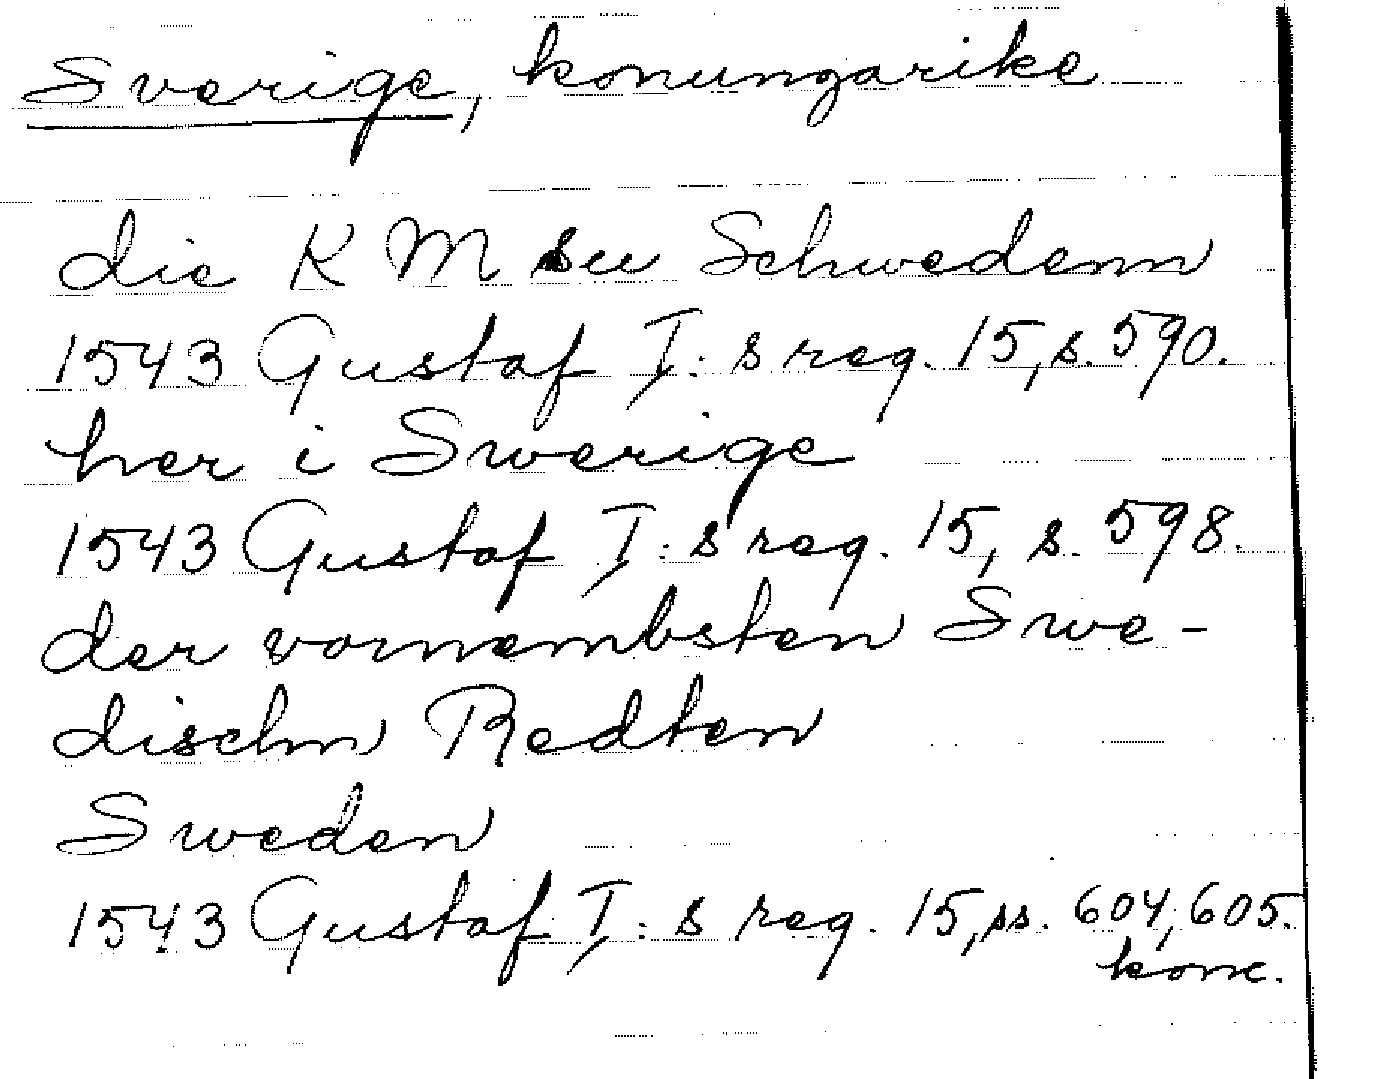 Sverige, konungarike
die K M su Schwedenn
1543 Gustaf I:s reg. 15, s. 590.
her i Swerige
1543 Gustaf I:s reg. 15, s. 598.
der vornembsten Swe-
dischn Redten
Sweden
1543 Gustaf I:s reg. 15, ss. 604, 605.
konc.